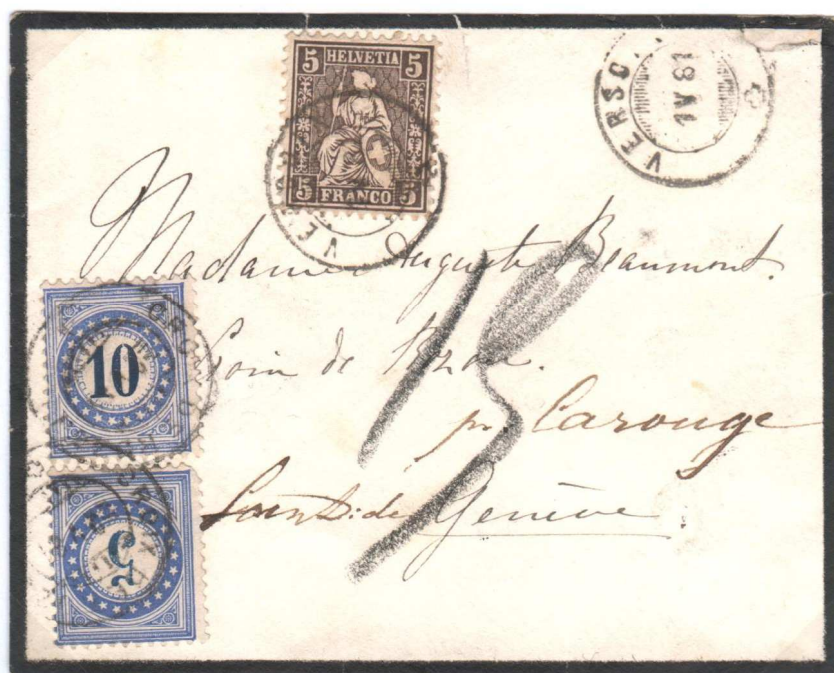 5 HELVETIA 5
5 FRANCO 5
VERSO
1 V 81
Madame Auguste Beaumont.
de
pr. Carouge
de Genève
15
10
5